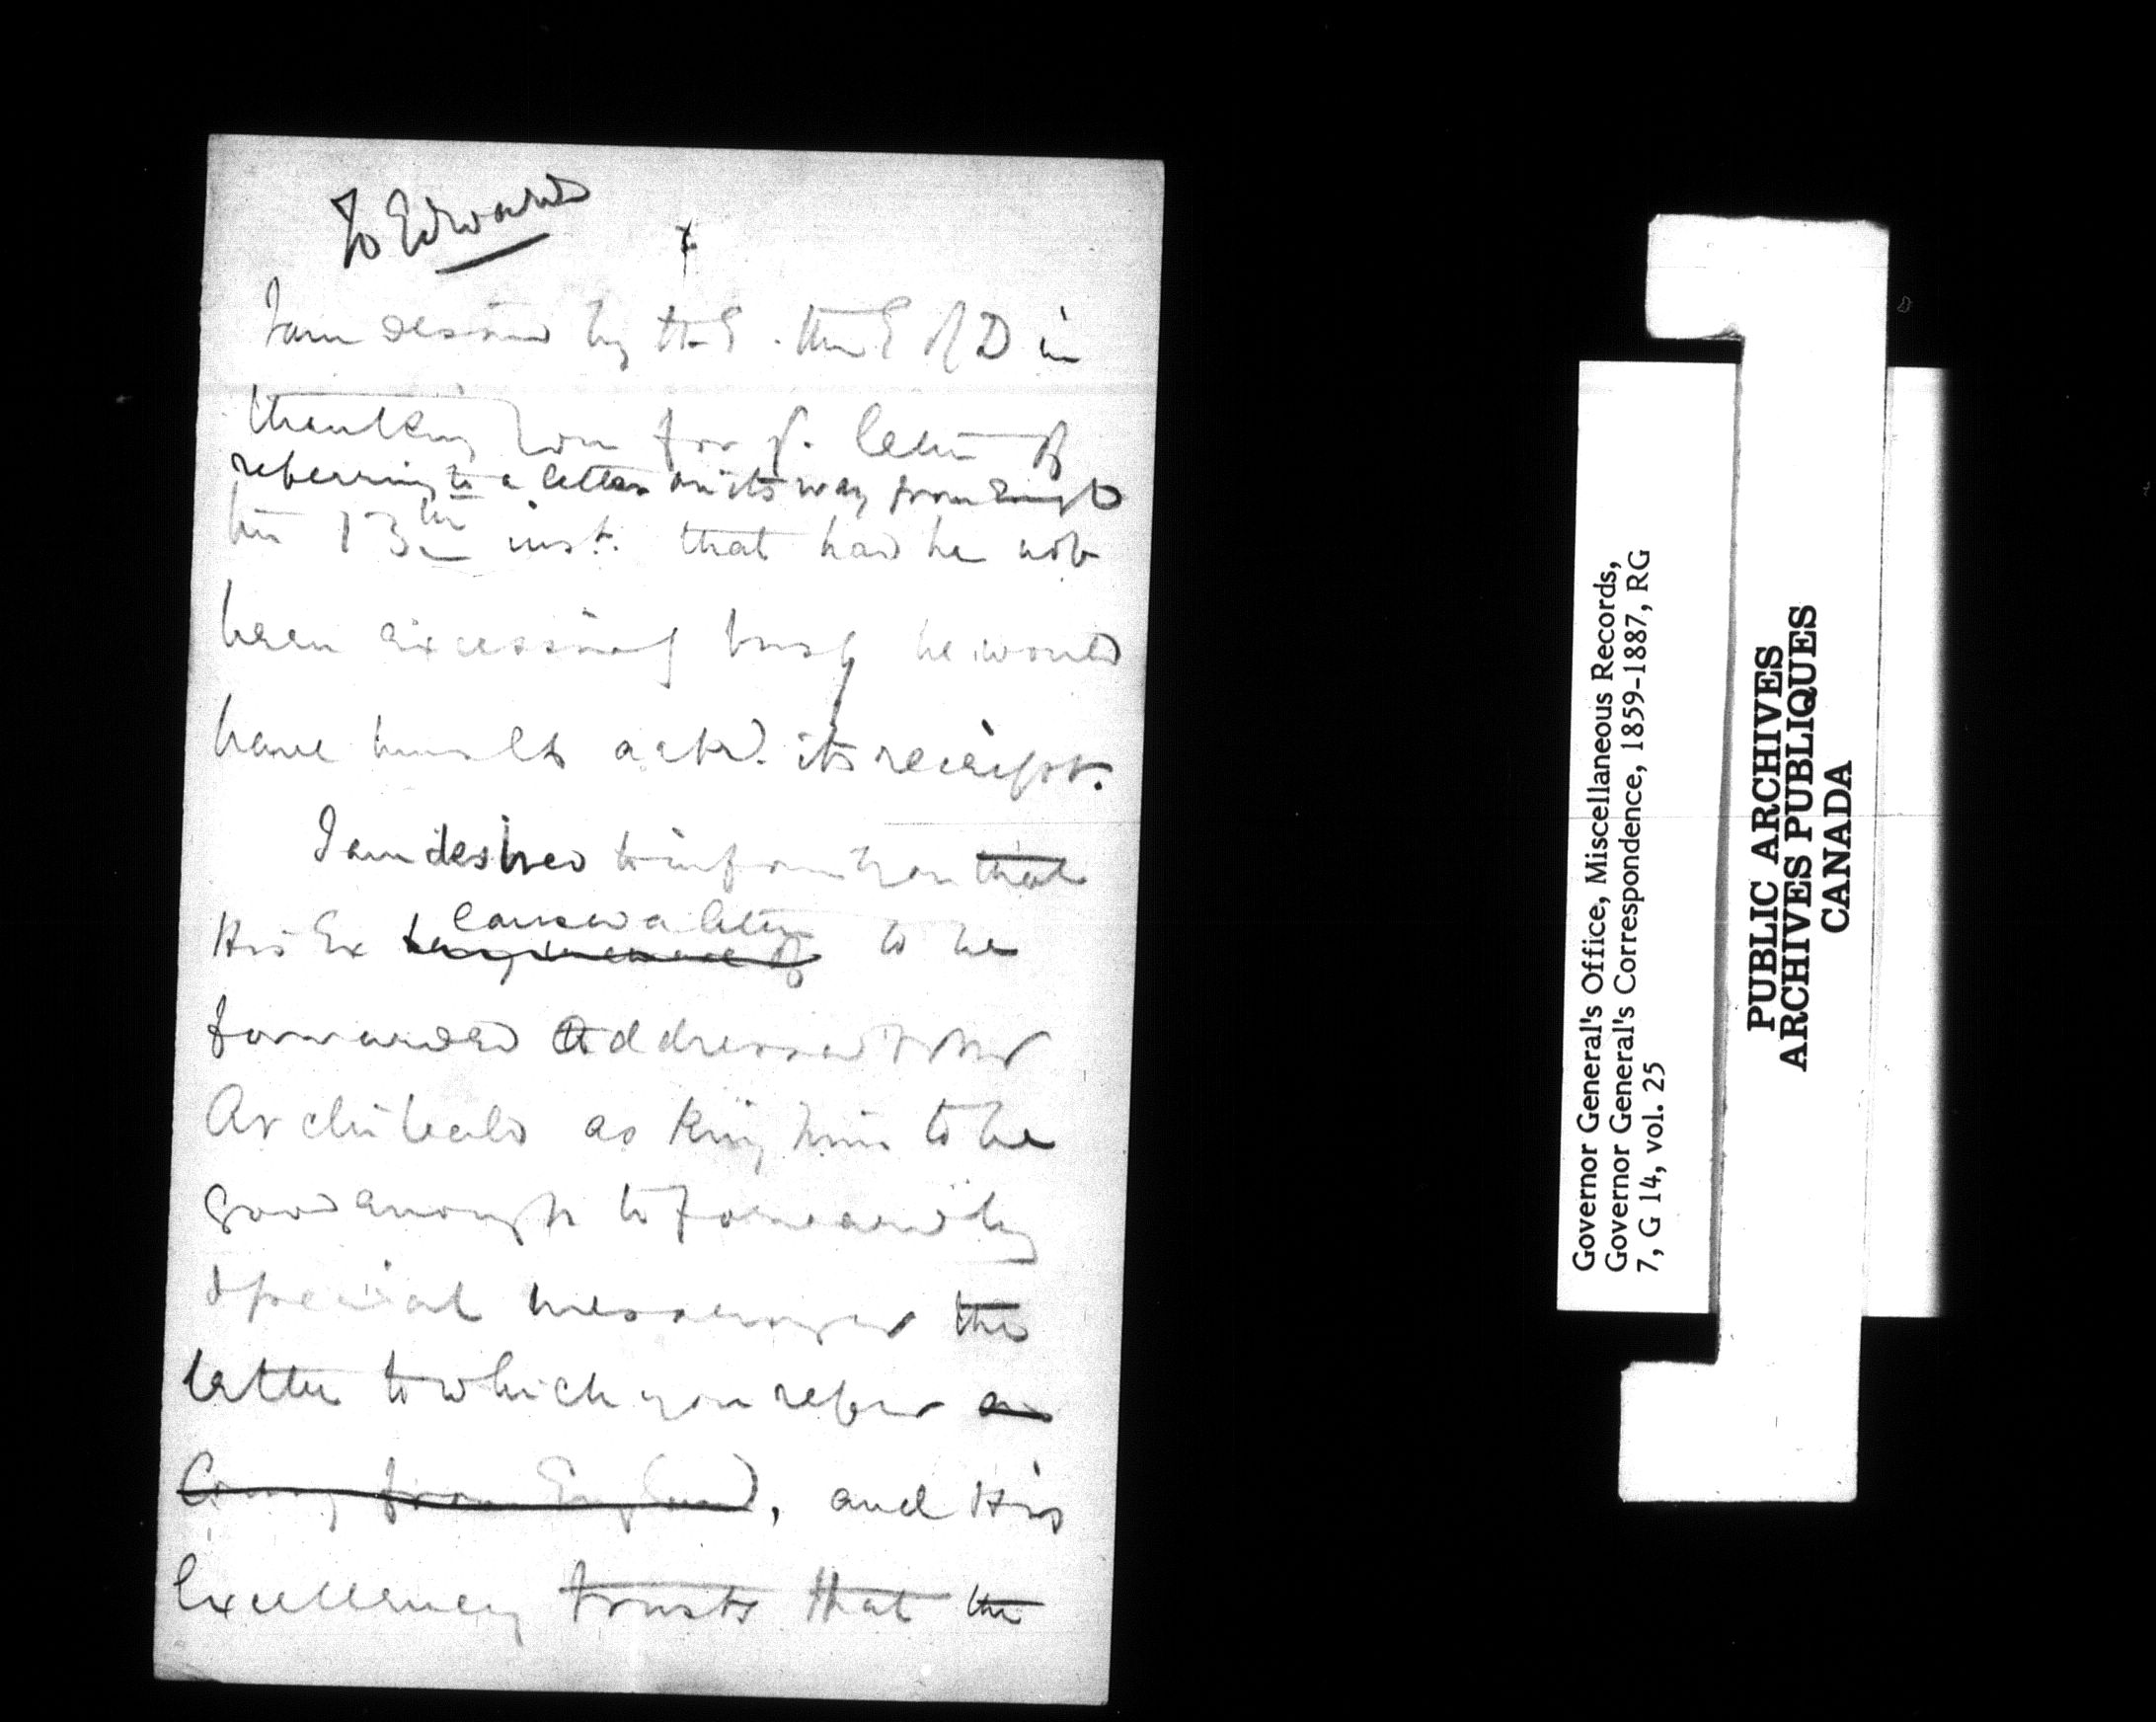 To Edward
I am desired by the E. the E of D in
thanking you for yr. letter of
referring to a letter on its way from Engld
the 13th inst. that had he not
been excessively busy he would
have himself ackd. its receipt.
I am desired to inform you that
His Ex caused a letter to be
forwarded addressed to Mr
Archibald asking him to be
good enough to forward by
special messenger the
letter to which you refer as
Coming from England, and His
Excellency trusts that the
Governor General's Office, Miscellaneous Records,
Governor General's Correspondence, 1859-1887, RG
7, G 14, vol. 25
PUBLIC ARCHIVES
ARCHIVES PUBLIQUES
CANADA